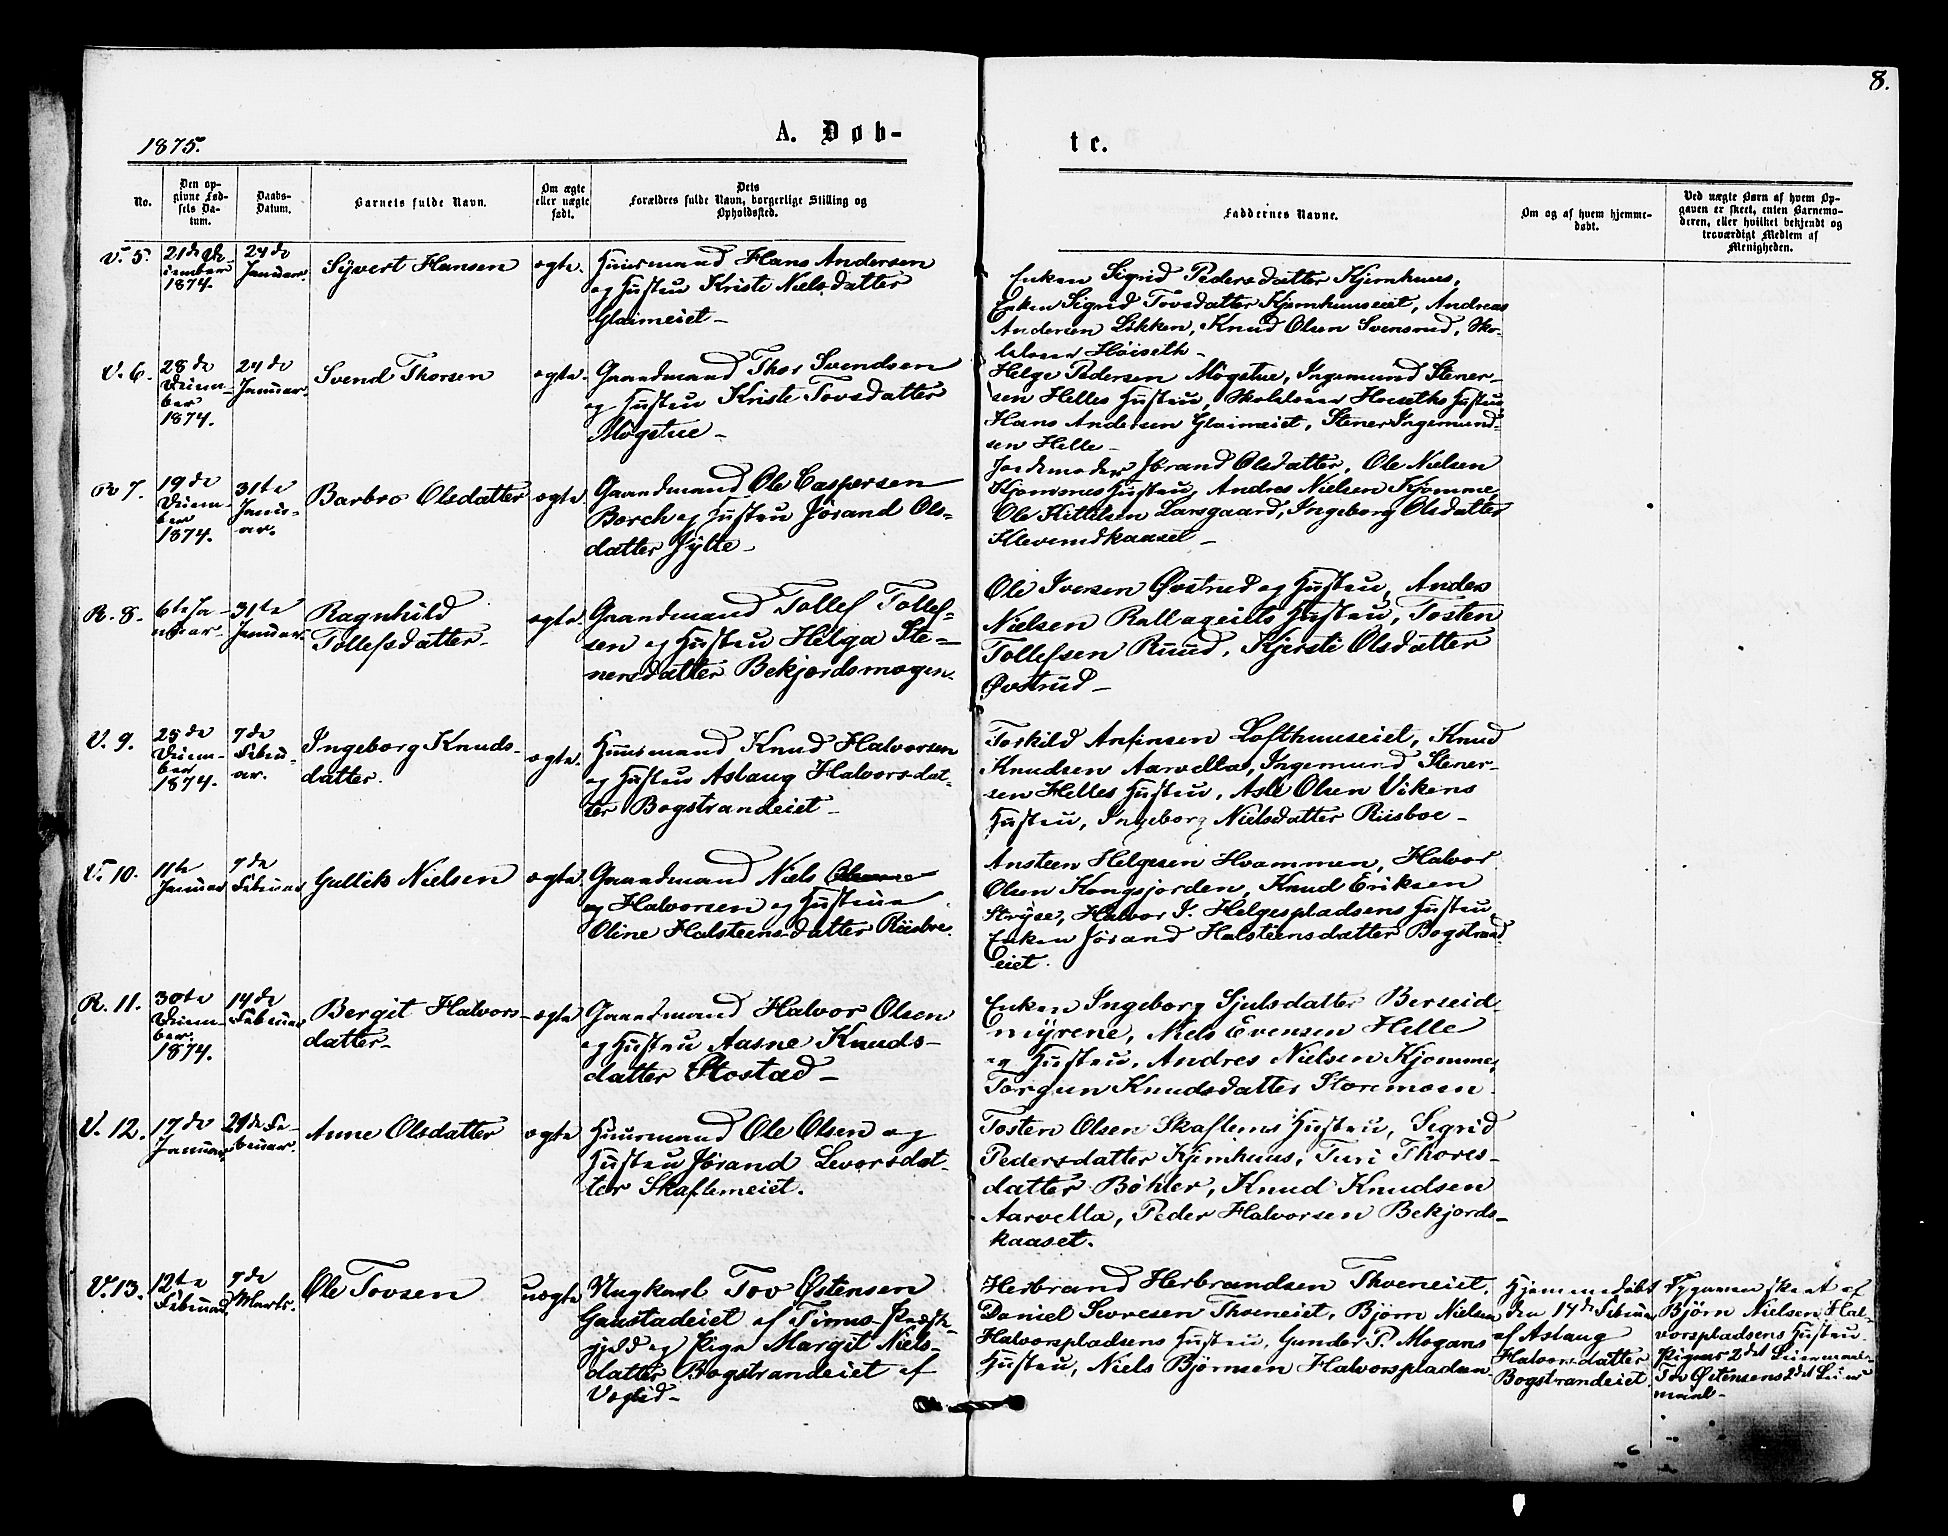 8.
1875.
A. Døb-
te.
No.
Den op-
givne Fød-
sels Da-
tum.
Daabs-
Datum.
Barnets fulde Navn.
Om ægte
eller uægte
født.
Dets
Forældres fulde Navn, borgerlige Stilling og
Opholdssted.
Faddernes Navne.
Om og af hvem hjemme-
døbt.
Ved uægte Børn af hvem Op-
gaven er skeet, enten Barnemo-
deren, eller hvilket bekjendt og
troværdigt Medlem af
Menigheden.
V. 5.
21de De-
cember
1874.
24de
Januar.
Syvert Hansen
ægte.
Huusmand Hans Andersen
og Hustru Kristi Nielsdatter
Glaimeiet-
Enken Sigrid Pedersdatter Kjemhuus,
Enken Sigrid Tovsdatter Kjemhuuseiet, Andreas
Andersen Løkken, Knud Olsen Svensrud, Sko-
lelærer Høiseth-
V. 6.
28de
Decem-
ber
1874.
24de
Januar.
Svend Thorsen
ægte.
Gaardmand Thor Svendsen
og Hustru Kristi Tovsdatter
Møgstue-
Helge Pedersen Møgstue, Ingemund Stener-
sen Helles Hustru, Skolelærer Høiseths Hustru
Hans Andersen Glaimeiet, Stener Ingemund-
sen Helle-
R 7.
19de
Decem-
ber
1874.
31te
Janu-
ar.
Barbro Olsdatter
ægte.
Gaardmand Ole Caspersen
Borch og Hustru Jørand Ols-
datter Jylte-
Jordemoder Jørand Olsdatter, Ole Nielsen
Kjommes Hustru, Andres Nielsen Kjomme,
Ole Kittilsen Larsgaard, Ingeborg Olsdatter
Klevendkaaset-
R. 8.
6te Ja-
nuar-
31te
Januar.
Ragnhild
Tollefsdatter-
ægte.
Gaardmand Tollef Tollef-
sen og Hustru Helga Ste-
nersdatter Bekjordsmogen.
Ole Iversen Øvstrud og Hustru, Anders
Nielsen Rallageilts Hustru, Tosten
Tollefsen Ruud, Kjersti Olsdatter
Øvstrud-
V. 9.
25de
Decem-
ber
1874.
7de
Febru-
ar.
Ingeborg Knuds-
datter.
ægte.
Huusmand Knud Halvorsen
og Hustru Aslaug Halvorsdat-
ter Bogstrandeiet-
Torkild Anfinsen Lofthuuseiet, Knud
Knudsen Aarvella, Ingemund Stener-
sen Helles Hustru, Asle Olsen Vikens
Hustru, Ingeborg Nielsdatter Riisboe-
V. 10.
11te
Januar
7de
Februar
Gullik Nielsen
ægte.
Gaardmand Niels
og Halvorsen og Hustru
Oline Halsteensdatter Riisboe.
Ansteen Helgesen Hvammen, Halvor
Olsen Kongsjorden, Knud Eriksen
Stryse, Halvor J. Helgespladsens Hustru
Enken Jørand Halsteensdatter Bogstrand
eiet.
R. 11.
30te
Decem-
ber.
1874.
14de
Februar
Bergit Halvors-
datter-
ægte
Gaardmand Halvor Olsen
og Hustru Aasne Knuds-
datter Stostad-
Enken Ingeborg Sjulsdatter Berseid-
myrene, Niels Evensen Helle
og Hustru, Andres Nielsen Kjomme,
Torgun Knudsdatter Storemoen.
V. 12.
17de
Januar
21de Fe-
bruar.
Anne Olsdatter
ægte
Huusmand Ole Olsen og
Hustru Jørand Levorsdat-
ter Skaflemeiet.
Tosten Olsen Skaflems Hustru, Sigrid
Pedersdatter Kjemhuus, Turi Thores-
datter Bøhler, Knud Knudsen
Aarvella, Peder Halvorsen Bekjords-
kaaset.
V. 13.
12te
Februar
7de
Marts.
Ole Tovsen
uægte
Ungkarl Tov Østensen
Gaustadeiet af Tinns Præste-
gjeld og Pige Margit Niels-
datter Bogstrandeiet af
Veglid-
Herbrand Herbrandsen Thoeneiet,
Daniel Severesen Thoeneiet, Bjørn Nielsen
Halvorspladsens Hustru, Gunder P. Mogans
Hustru, Niels Bjørnsen Halvorspladsen
Hjemmedøbt
den 14de Februar
af Aslaug
Halvorsdatter
Bogstrandeiet.
Opgaven skeet af
Bjørn Nielsen Hal-
vorspladsens Hustru.
Pigens 2det Leiermaal-
Tov Østensens 2det Leier
maal-